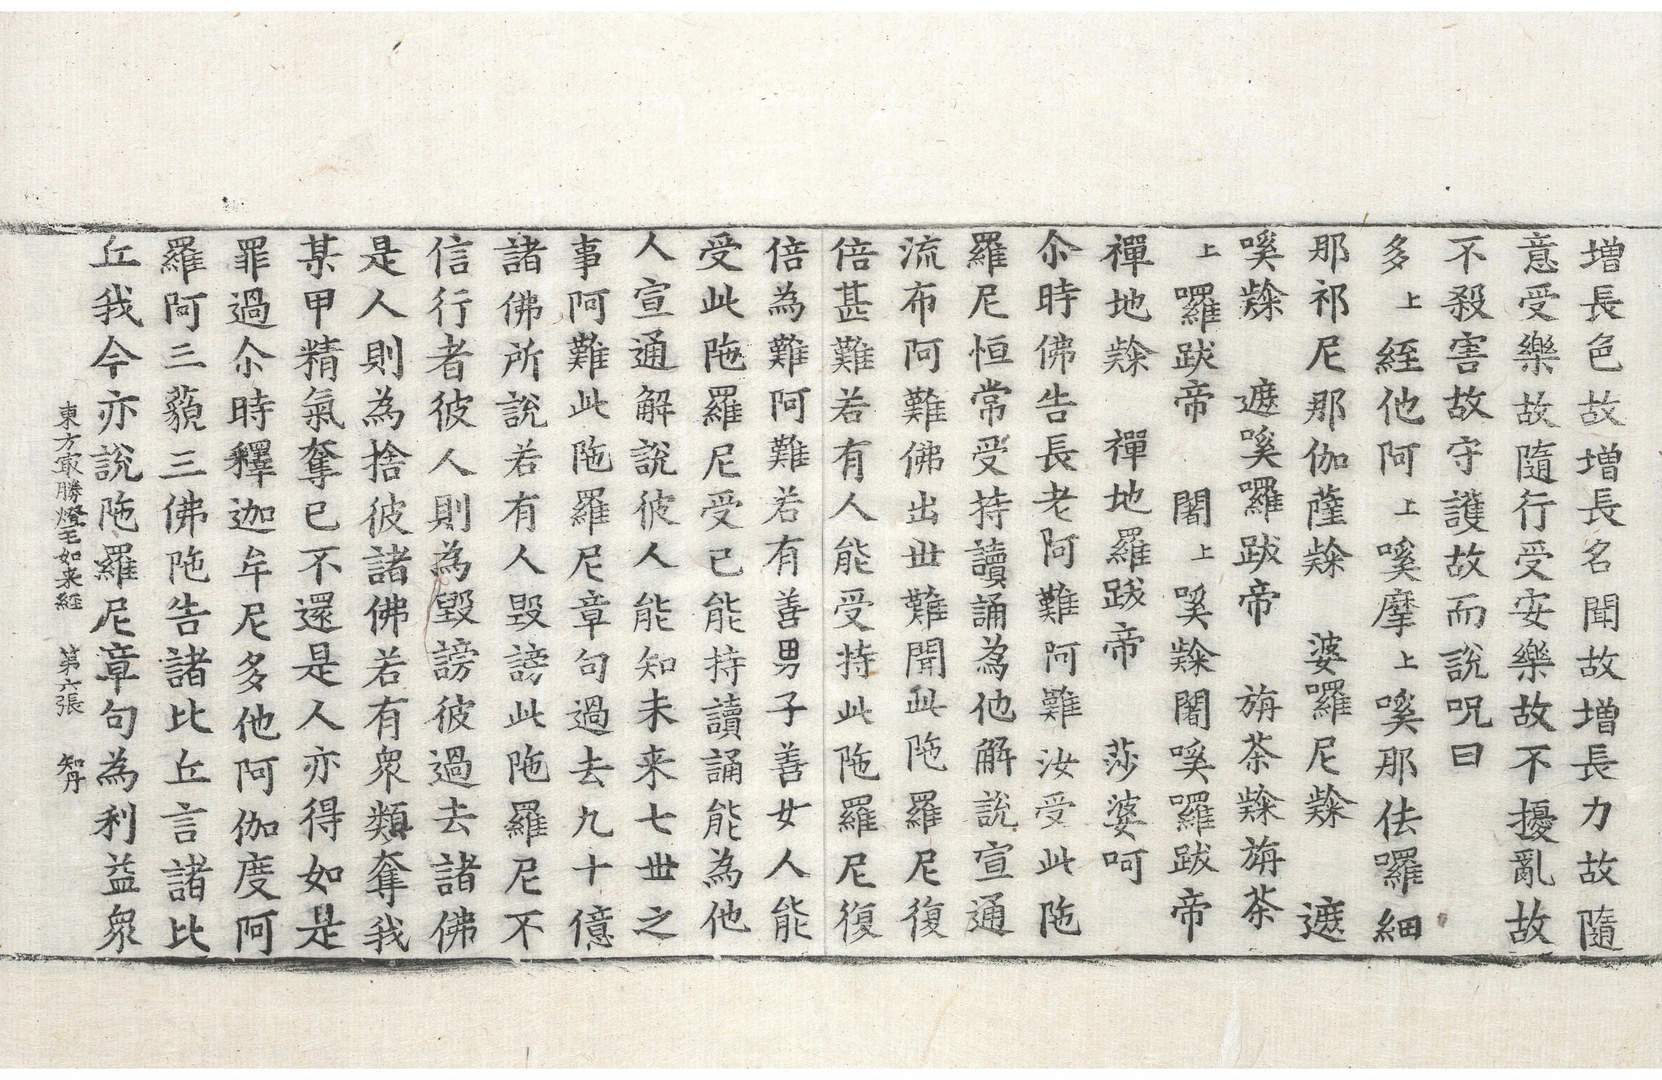 增長色故增長名聞故增長力故隨
意受樂故隨行受安樂故不擾亂故
不殺害故守護故而說呪曰
多上絰他阿上嗘摩上嗘那佉囉細
那祁尼那伽薩㷠 婆囉尼㷠 遮
嗘㷠 遮嗘囉跋帝 旃荼㷠旃荼
上囉跋帝 闍上嗘㷠闍嗘囉跋帝
禪地㷠 禪地羅跋帝 莎婆呵
尒時佛告長老阿難阿難汝受此陁
羅尼恒常受持讀誦為他解說宣通
流布阿難佛出世難聞此陁羅尼復
倍甚難若有人能受持此陁羅尼復
倍為難阿難若有善男子善女人能
受此陁羅尼受已能持讀誦能為他
人宣通解說彼人能知未来七世之
事阿難此陁羅尼章句過去九十億
諸佛所說若有人毀謗此陁羅尼不
信行者彼人則為毀謗彼過去諸佛
是人則為捨彼諸佛若有衆類奪我
某甲精氣奪已不還是人亦得如是
罪過尒時釋迦牟尼多他阿伽度阿
羅阿三藐三佛陁告諸比丘言諸比
丘我今亦說陁羅尼章句為利益衆
東方㝡勝燈王如来經 第六張 知丹